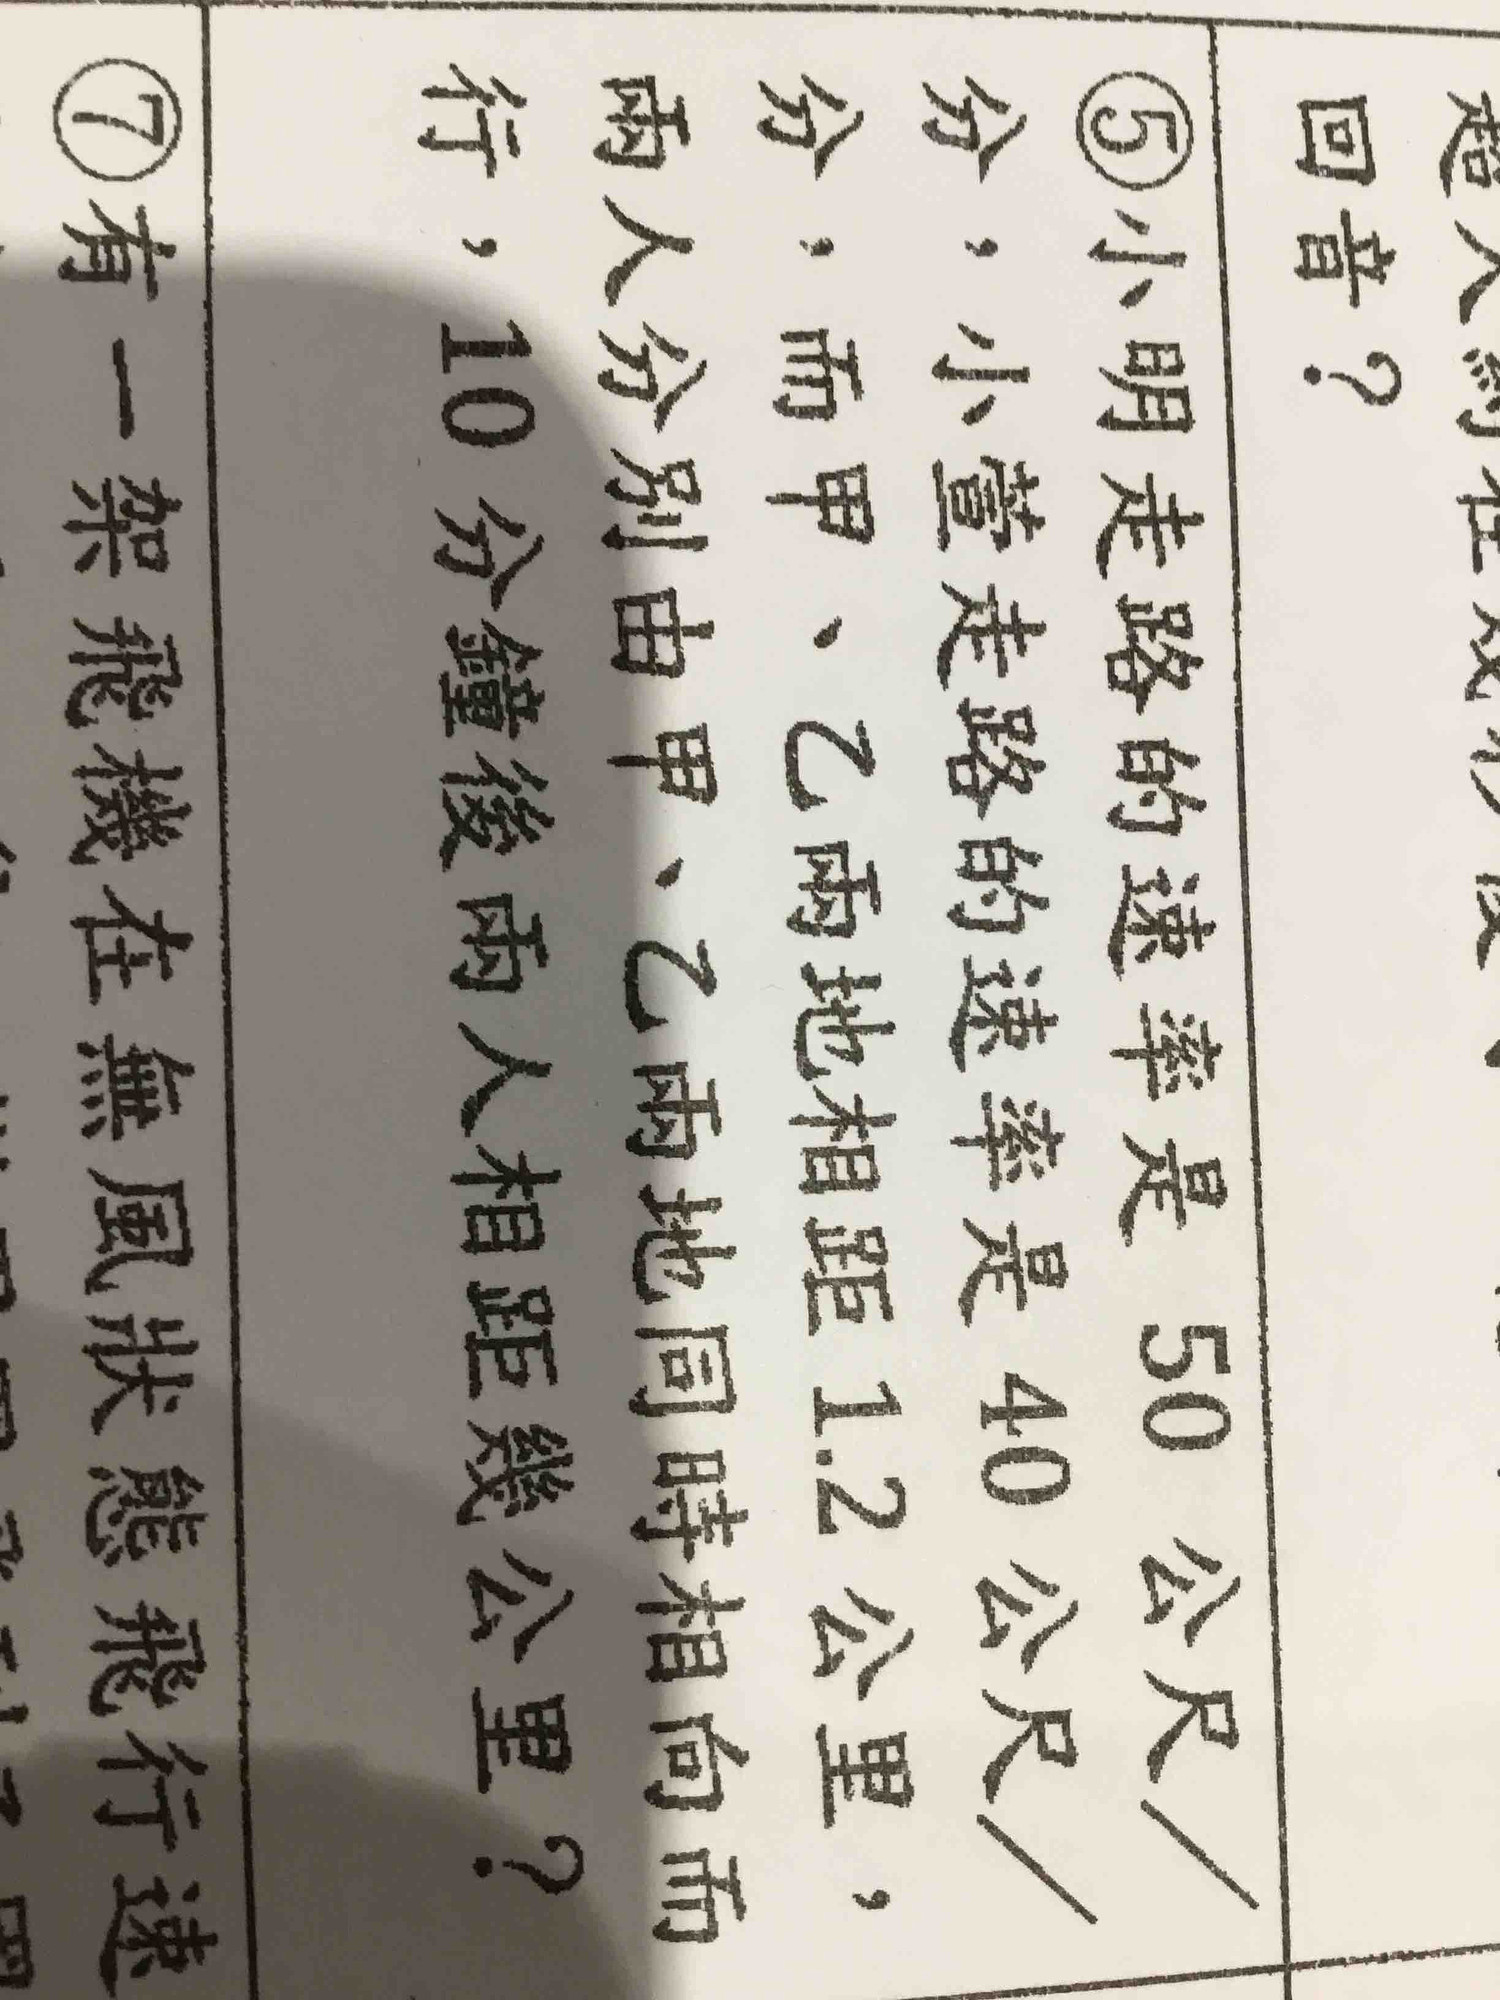 回音？
⑤小明走路的速率是 50 公尺／
分，小萱走路的速率是 40 公尺／
分，而甲、乙兩地相距 1.2 公里，
兩人分別由甲、乙兩地同時相向而
行，10 分鐘後兩人相距幾公里？
⑦有一架飛機在無風狀態飛行速